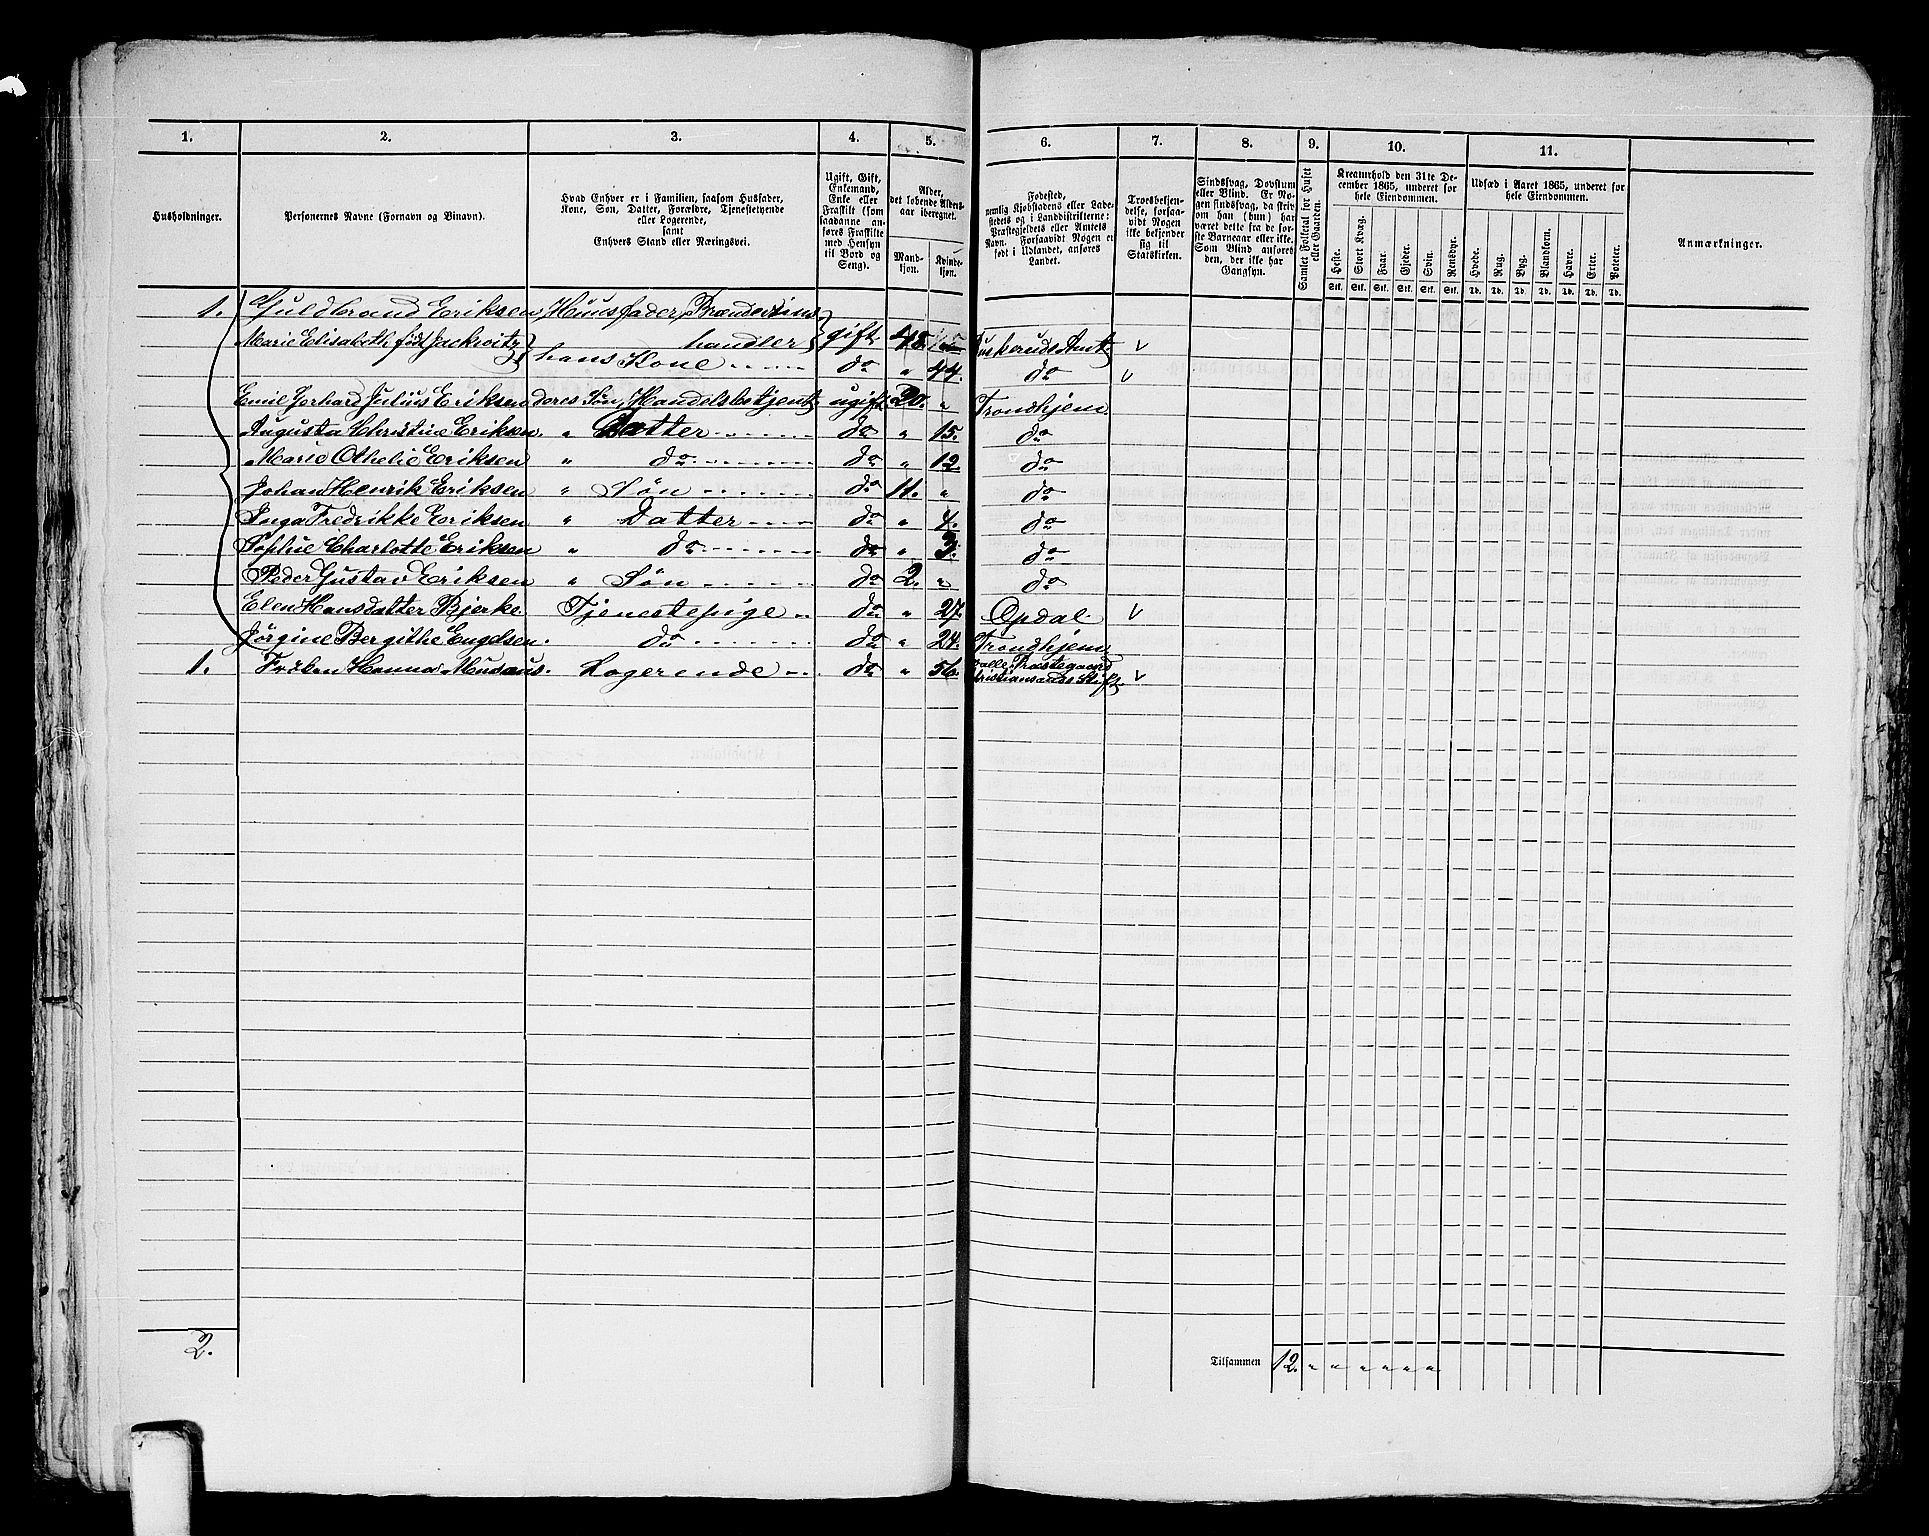 1. 2. 3. 4. 5. 6. 7. 8. 9. 10. 11.
Husholdninger.
Personernes Navne (Fornavn og Binavn).
Hvad Enhver er i Familien, saasom Husfader,
Kone, Søn, Datter, Forældre, Tjenestetyende
eller Logerende,
samt
Enhvers Stand eller Næringsvei.
Ugift, Gift,
Enkemand,
Enke eller
Fraskilt (som
saadanne an-
føres Fraskilte
med Hensyn
til Bord og
Seng).
Alder,
det løbende Alders-
aar iberegnet.
Mand-
kjøn.
Kvinde-
kjøn.
Fødested,
nemlig Kjøbstadens eller Lade-
stedets og i Landdistrikterne:
Præstegjeldets eller Amtets
Navn. Forsaavidt Nogen er
født i Udlandet, anføres
Landet.
Troesbekjen-
delse, forsaa-
vidt Nogen
ikke bekjender
sig til
Statskirken.
Sindssvag, Døvstum
eller Blind. Er No-
gen sindssvag, da skri-
ves om han (hun) har
været dette fra de før-
ste Barneaar eller ikke.
Som Blind anføres
den, der ikke har
Gangsyn.
Samlet Folketal for Huset
eller Gaarden.
Kreaturhold den 31te De-
cember 1865, underet for
hele Eiendommen.
Heste. Stort Kvæg. Faar. Gjeder. Svin. Rensdyr.
Stk. Stk. Stk. Stk. Stk. Stk.
Udsæd i Aaret 1865, underet for
hele Eiendommen.
Hvede. Rug. Byg. Blandkorn. Havre. Erter. Poteter.
Td. Td. Td. Td. Td. Td. Td.
Anmærkninger.
1. Guldbrand Eriksen, Huusfader, Brændeviins
handler gift 48. Buskeruds Amt v
Marie Elisabeth født Jackwitz hans Kone do " 44. do v
Emil Gerhard Julius Eriksen deres Søn, Handelsbetjent ugift 20. " Trondhjem
Augusta Christine Eriksen. " Datter do " 15. do
Marie Othelie Eriksen " do do " 12. do
Johan Henrik Eriksen " Søn do 11. " do
Inga Fredrikke Eriksen " Datter do " 4. do
Sophie Charlotte Eriksen " do do " 3. do
Peder Gustav Eriksen " Søn do 2. " do
Elen Hansdatter Bjerke. Tjenestepige do " 27. Opdal. v
Jørgine Bergithe Engelsen. do do " 24. Trondhjem
1. Frøken Hanna Logerende do " 56. Valle Præstegaard
Christiansands Stift v
2.
Tilsammen 12. " " " " " "